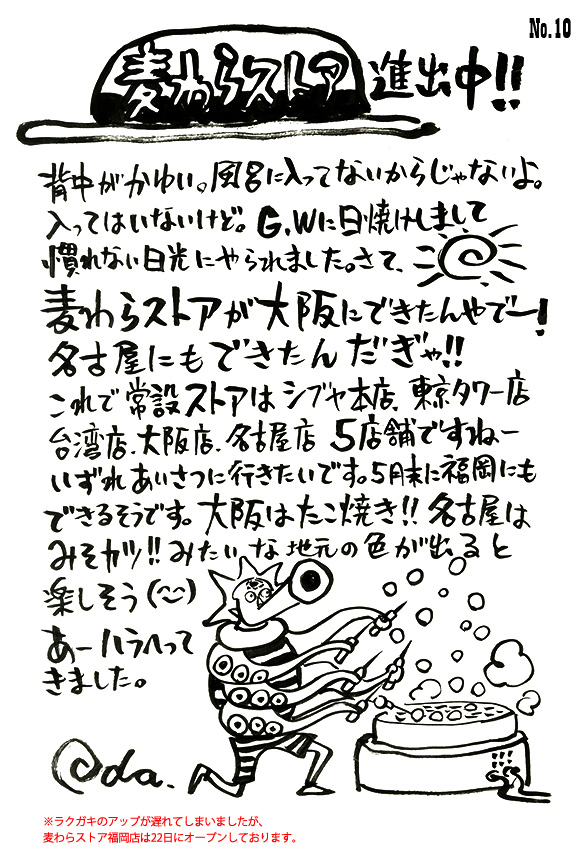 No.10
麦わらストア進出中!!
背中がかゆい。風呂に入ってないからじゃないよ。
入ってはいないけど。G.Wに日焼けしまして
慣れない日光にやられました。さて、
麦わらストアが大阪にできたんやでー!
名古屋にもできたんだぎゃ!!
これで常設ストアはシブヤ本店、東京タワー店
台湾店、大阪店、名古屋店 5店舗ですねー
いずれあいさつに行きたいです。5月末に福岡にも
できるそうです。大阪はたこ焼き!! 名古屋は
みそカツ!! みたいな地元の色が出ると
楽しそう(^^)
あーハラへって
きました。
Oda.
※ラクガキのアップが遅れてしまいましたが、
麦わらストア福岡店は22日にオープンしております。